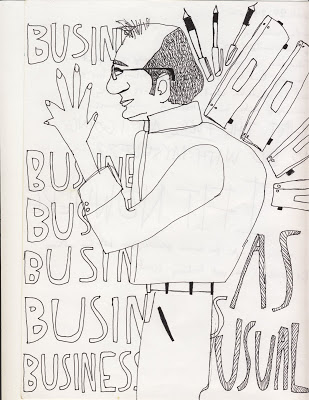 BUSINE
BUSINE
BUS
BUSIN
AS
BUSIN S
BUSINESS USUAL